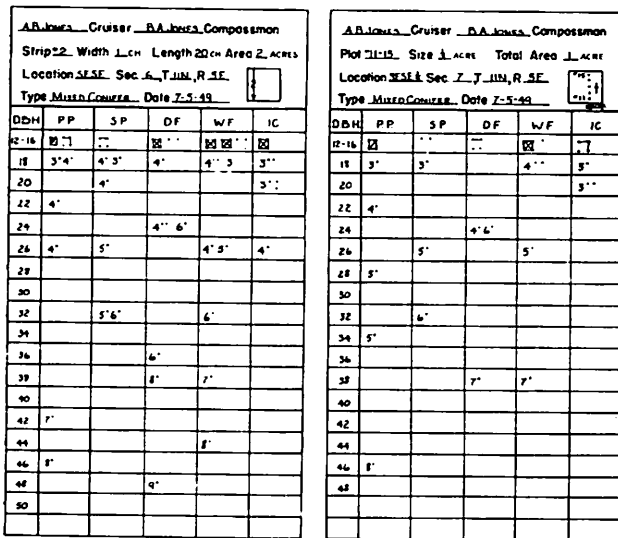 A.B. JONES Cruiser B.A. JONES Compassman
Strip #2 Width 1 CH Length 20 CH Area 2 ACRES
Location SESE Sec 6, T 11N, R 5E
Type MIXED CONIFER Date 7-5-49
DBH PP SP DF WF IC
12-16
18 3 4 4 3 4 4 3 3
20 4 3
22 4
24 4 6
26 4 5 4 5 4
28
30
32 5 6 6
34
36 6
38 8 7
40
42 7
44 8
46 8
48 9
50
A.B. JONES Cruiser B.A. JONES Compassman
Plot 11-15 Size Total Area 1 ACRE
Location SESE Sec 7, T 11N, R 5E
Type MIXED CONIFER Date 7-5-49
DBH PP SP DF WF IC
12-16
18 3 3 4
20 3
22 4
24 4 6
26 5 5
28 5
30
32 6
34 5
36
38 7 7
40
42
44
46 8
48